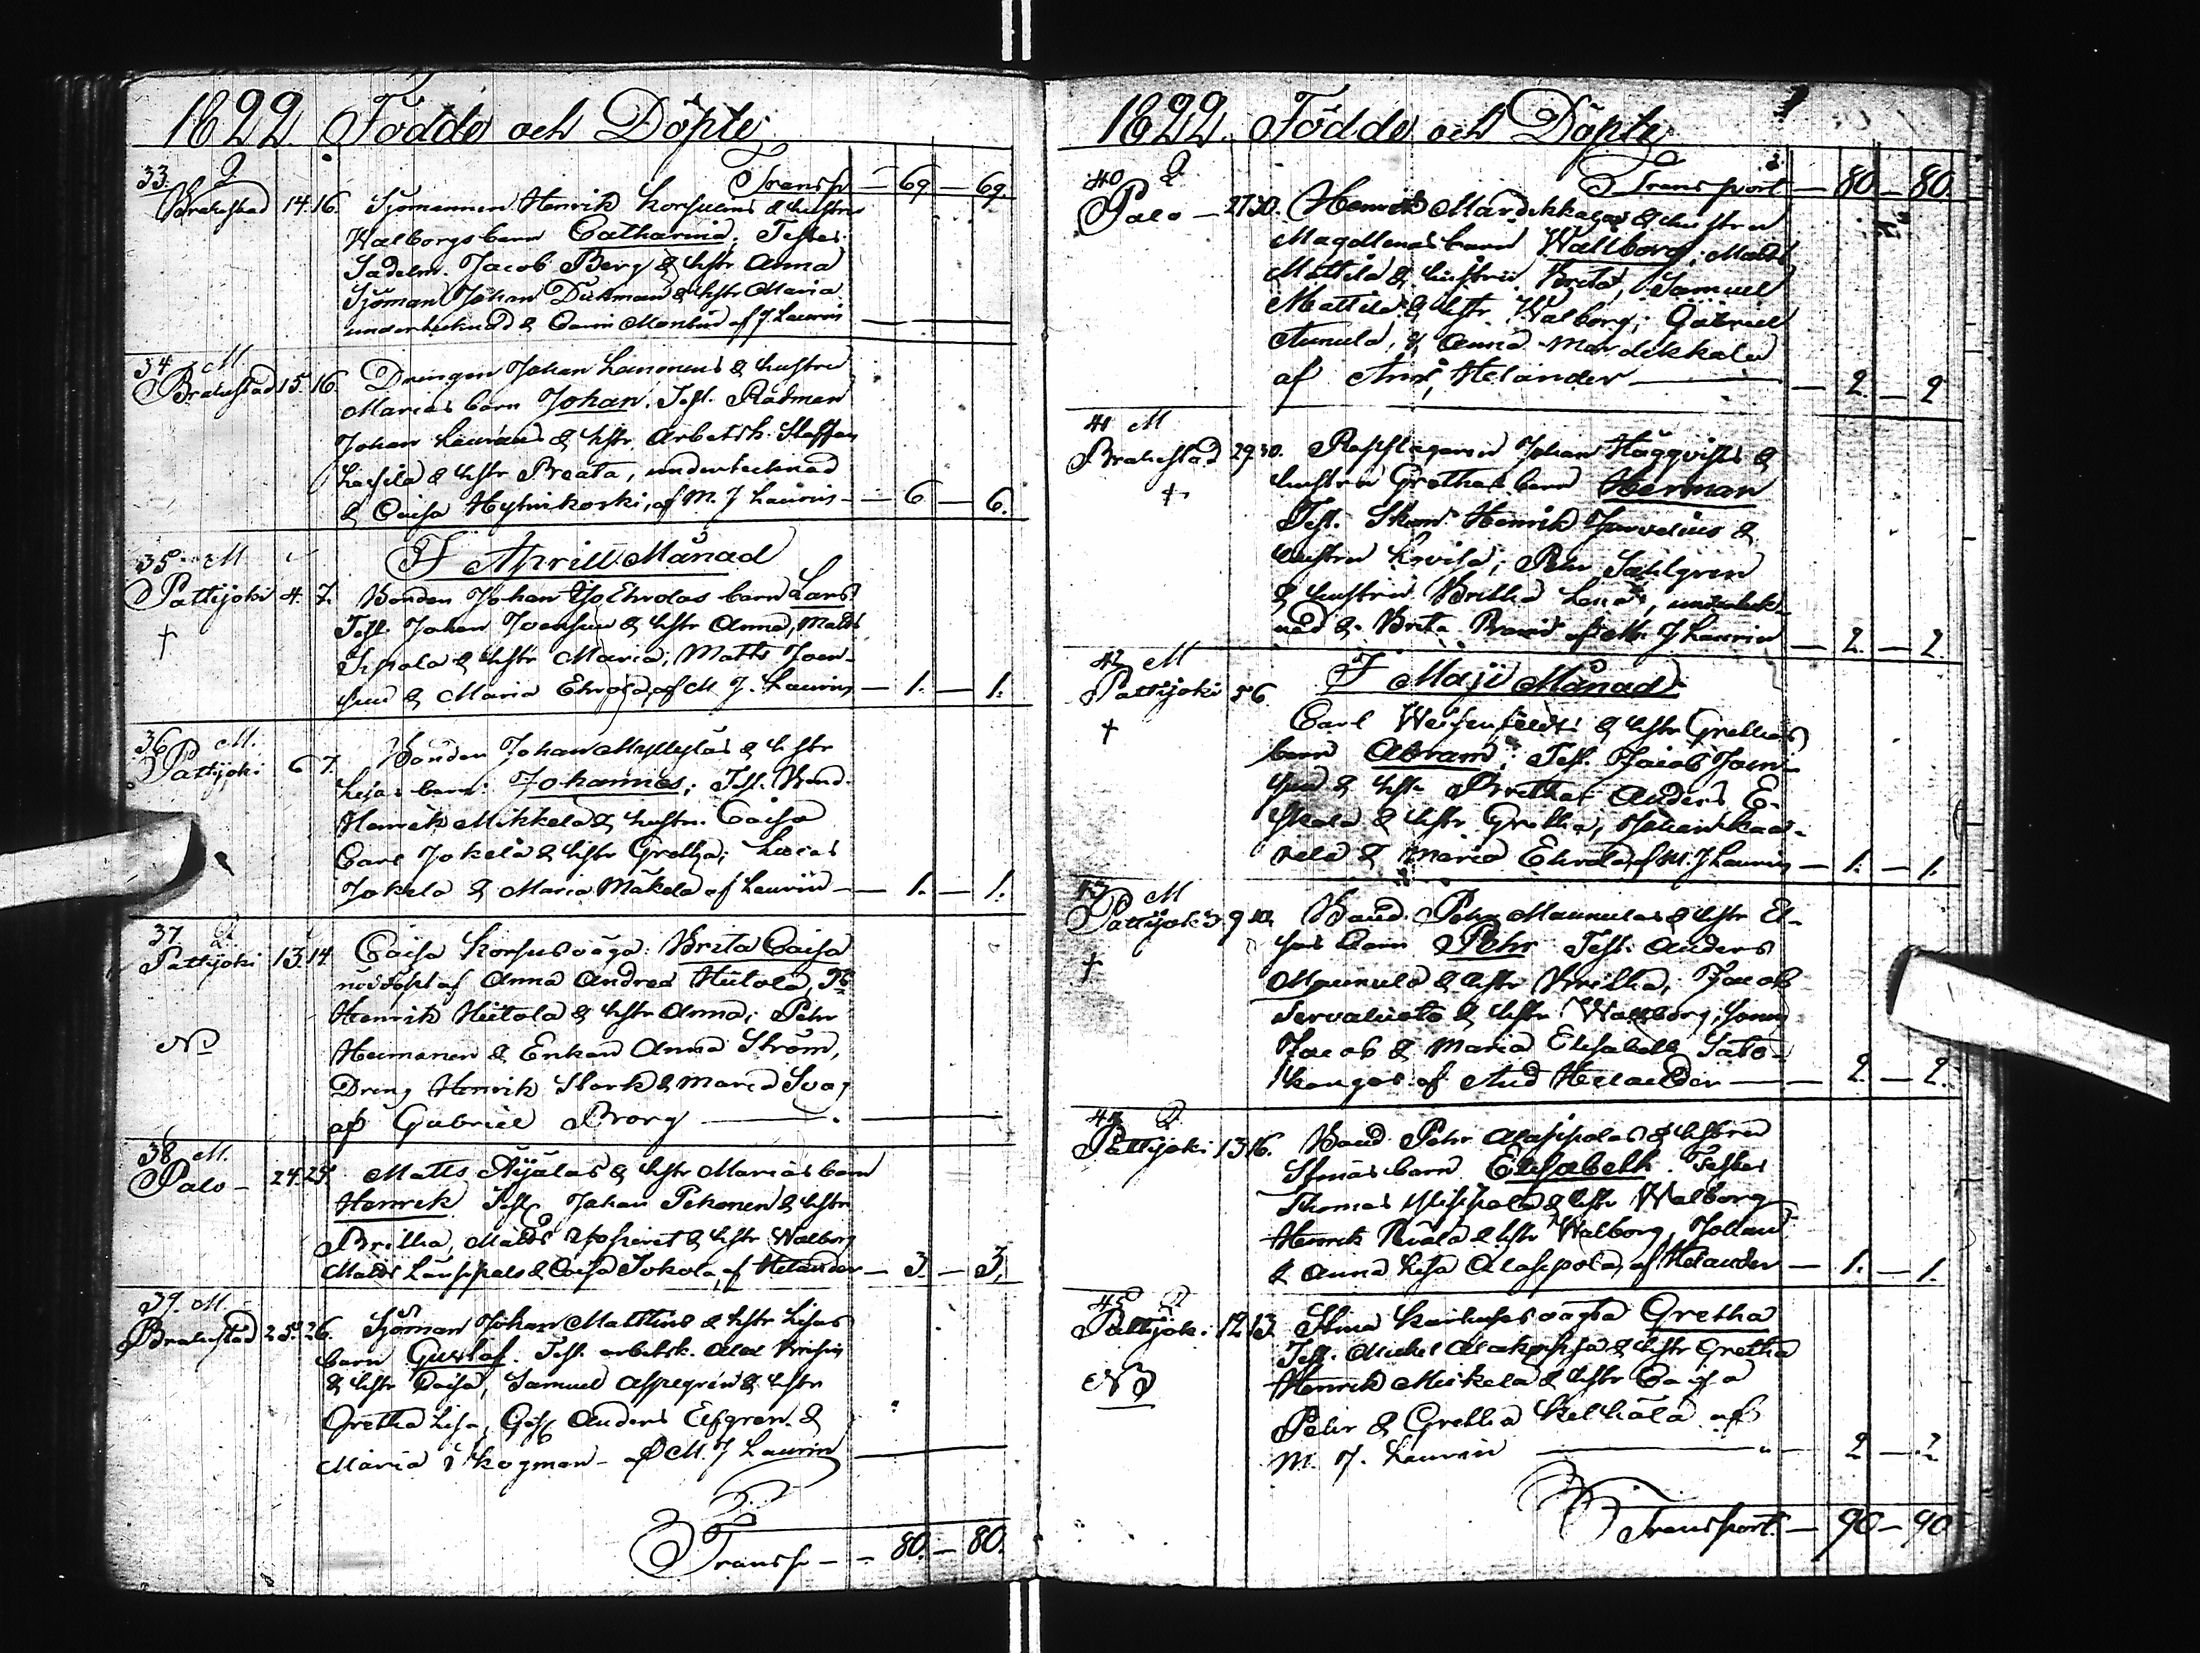 1822. Födde och Döpte
33. Q Transp — 69 — 69.
Brahestad 14. 16. Sjömannen Henrik Korsulins & hustru
Walborgs barn Catharina; Testes:
Sadelm. Jacob Berg & hstr Anna
Sjöman Johan Dickman & hstr Maria
undertecknad & af J. Laurin
34. M
Brahestad 15. 16. Drängen Johan & hustru
Marias barn Johan. Test. Rådman
Johan & hstr Arbetsk. Staffan
& hstr Breata, undertecknad
& Caisa Hytinkoski, af M. J Laurin — 6 — 6.
I Aprill Månad
35. M
Pattijoki 4. 7. Bonden Johan Ehrolas barn Lars
Test. Johan Joensuu & hstr Anna, Matts
& hstr Maria; Matts Joen-
suu & Maria Ehrola, af M. J. Laurin — 1. — 1.
36 M.
Pattijoki 6 7. Bonden Johan Myllyläs & hstr
Lisas barn: Johannes; Test. Bond.
Henrik Mikkela & hustru Caisa
Carl Jokela & hstr Gretha; Lucas
Jokela & Maria Mäkela af Laurin — 1. — 1.
37 Q
Pattijoki 13. 14. Caisa Korsus oägta: Brita Caisa
nöddöpt af Anna Andrea Hiitola, Ts
Henrik Hiitola & hstr Anna; Pehr
Heimonen & Enkan Anna Ström,
Dreng Henrik Stark & Maria
af Gabriel Borg
No
38 M.
Palo — 24. 25. Matts Äijälas & hstr Marias barn
Henrik Test. Johan Pikonen & hstr
Britha, Matts & hstr Walborg
Matts & Caisa Jokola, af Helander — 3. — 3.
39. M.
Brahestad 25. 26. Sjöman Johan Matthius & hstr Lisas
barn Gustaf. Test. arbetsk.
& hstr Caisa, Samuel Aspegren & hstr
Gretha Lisa, Ges. Anders Elfgren &
Maria Skogman — af M. J Laurin
Transp — 80. — 80.
1822. Födde och Döpte
40 Q Transport — 80 — 80.
Palo — 27 30. Henrik Mardikkalas & hustru
Magdlenas barn Wallborg; Matts
Mattila & hustru Brita, Samuel
Mattila & hstr Walborg; Gabriel
Anunula, & Anna Mardikkala
af Helander — 2. — 2
41 M
Brahestad 29 30. Repslagaren Johan Häggqvists &
hustru Grethas barn Herman
Test. Henrik Juvelius &
hustru Lovisa; Pehr Sahlgren
& hustru Britha Lena, underteck-
nad & Brita af M. J Laurin — 2. — 2.
I Maji Månad
42 M
Pattijoki 5 6. Carl & hstr Grethas
barn Abram; Test. Jacob Joen-
suu & hstr Bretha Anders E-
skola & hstr Gretha; Johan
& Maria Ehrola, af M. J Laurin — 1. — 1.
43 M
Pattijoki 9 10. Bond. Pehr Maunulas & hstr El-
sas barn Pehr Test. Anders
Maunula & hstr Britha; Jacob
& hstr Walborg;
Jacob & Maria Elisabeth Salo-
kangas af And Helander — 2. — 2.
44 Q
Pattijoki 13 16. Bond Pehr Alasipolas & hstru
Stinas barn Elisabeth. Testes
Thomas & hstr Walborg
Henrik & hstr Walborg, Johan
& Anna Lisa Alasipola, af Helander — 1. — 1.
45 Q
Pattijoki 12 13. Stina oägta Gretha
Test. Michel & hstr Gretha
Henrik Mickela & hstr Caisa
Pehr & Gretha af
M. J. Laurin — 2 — 2
No
Transport — 90 — 90